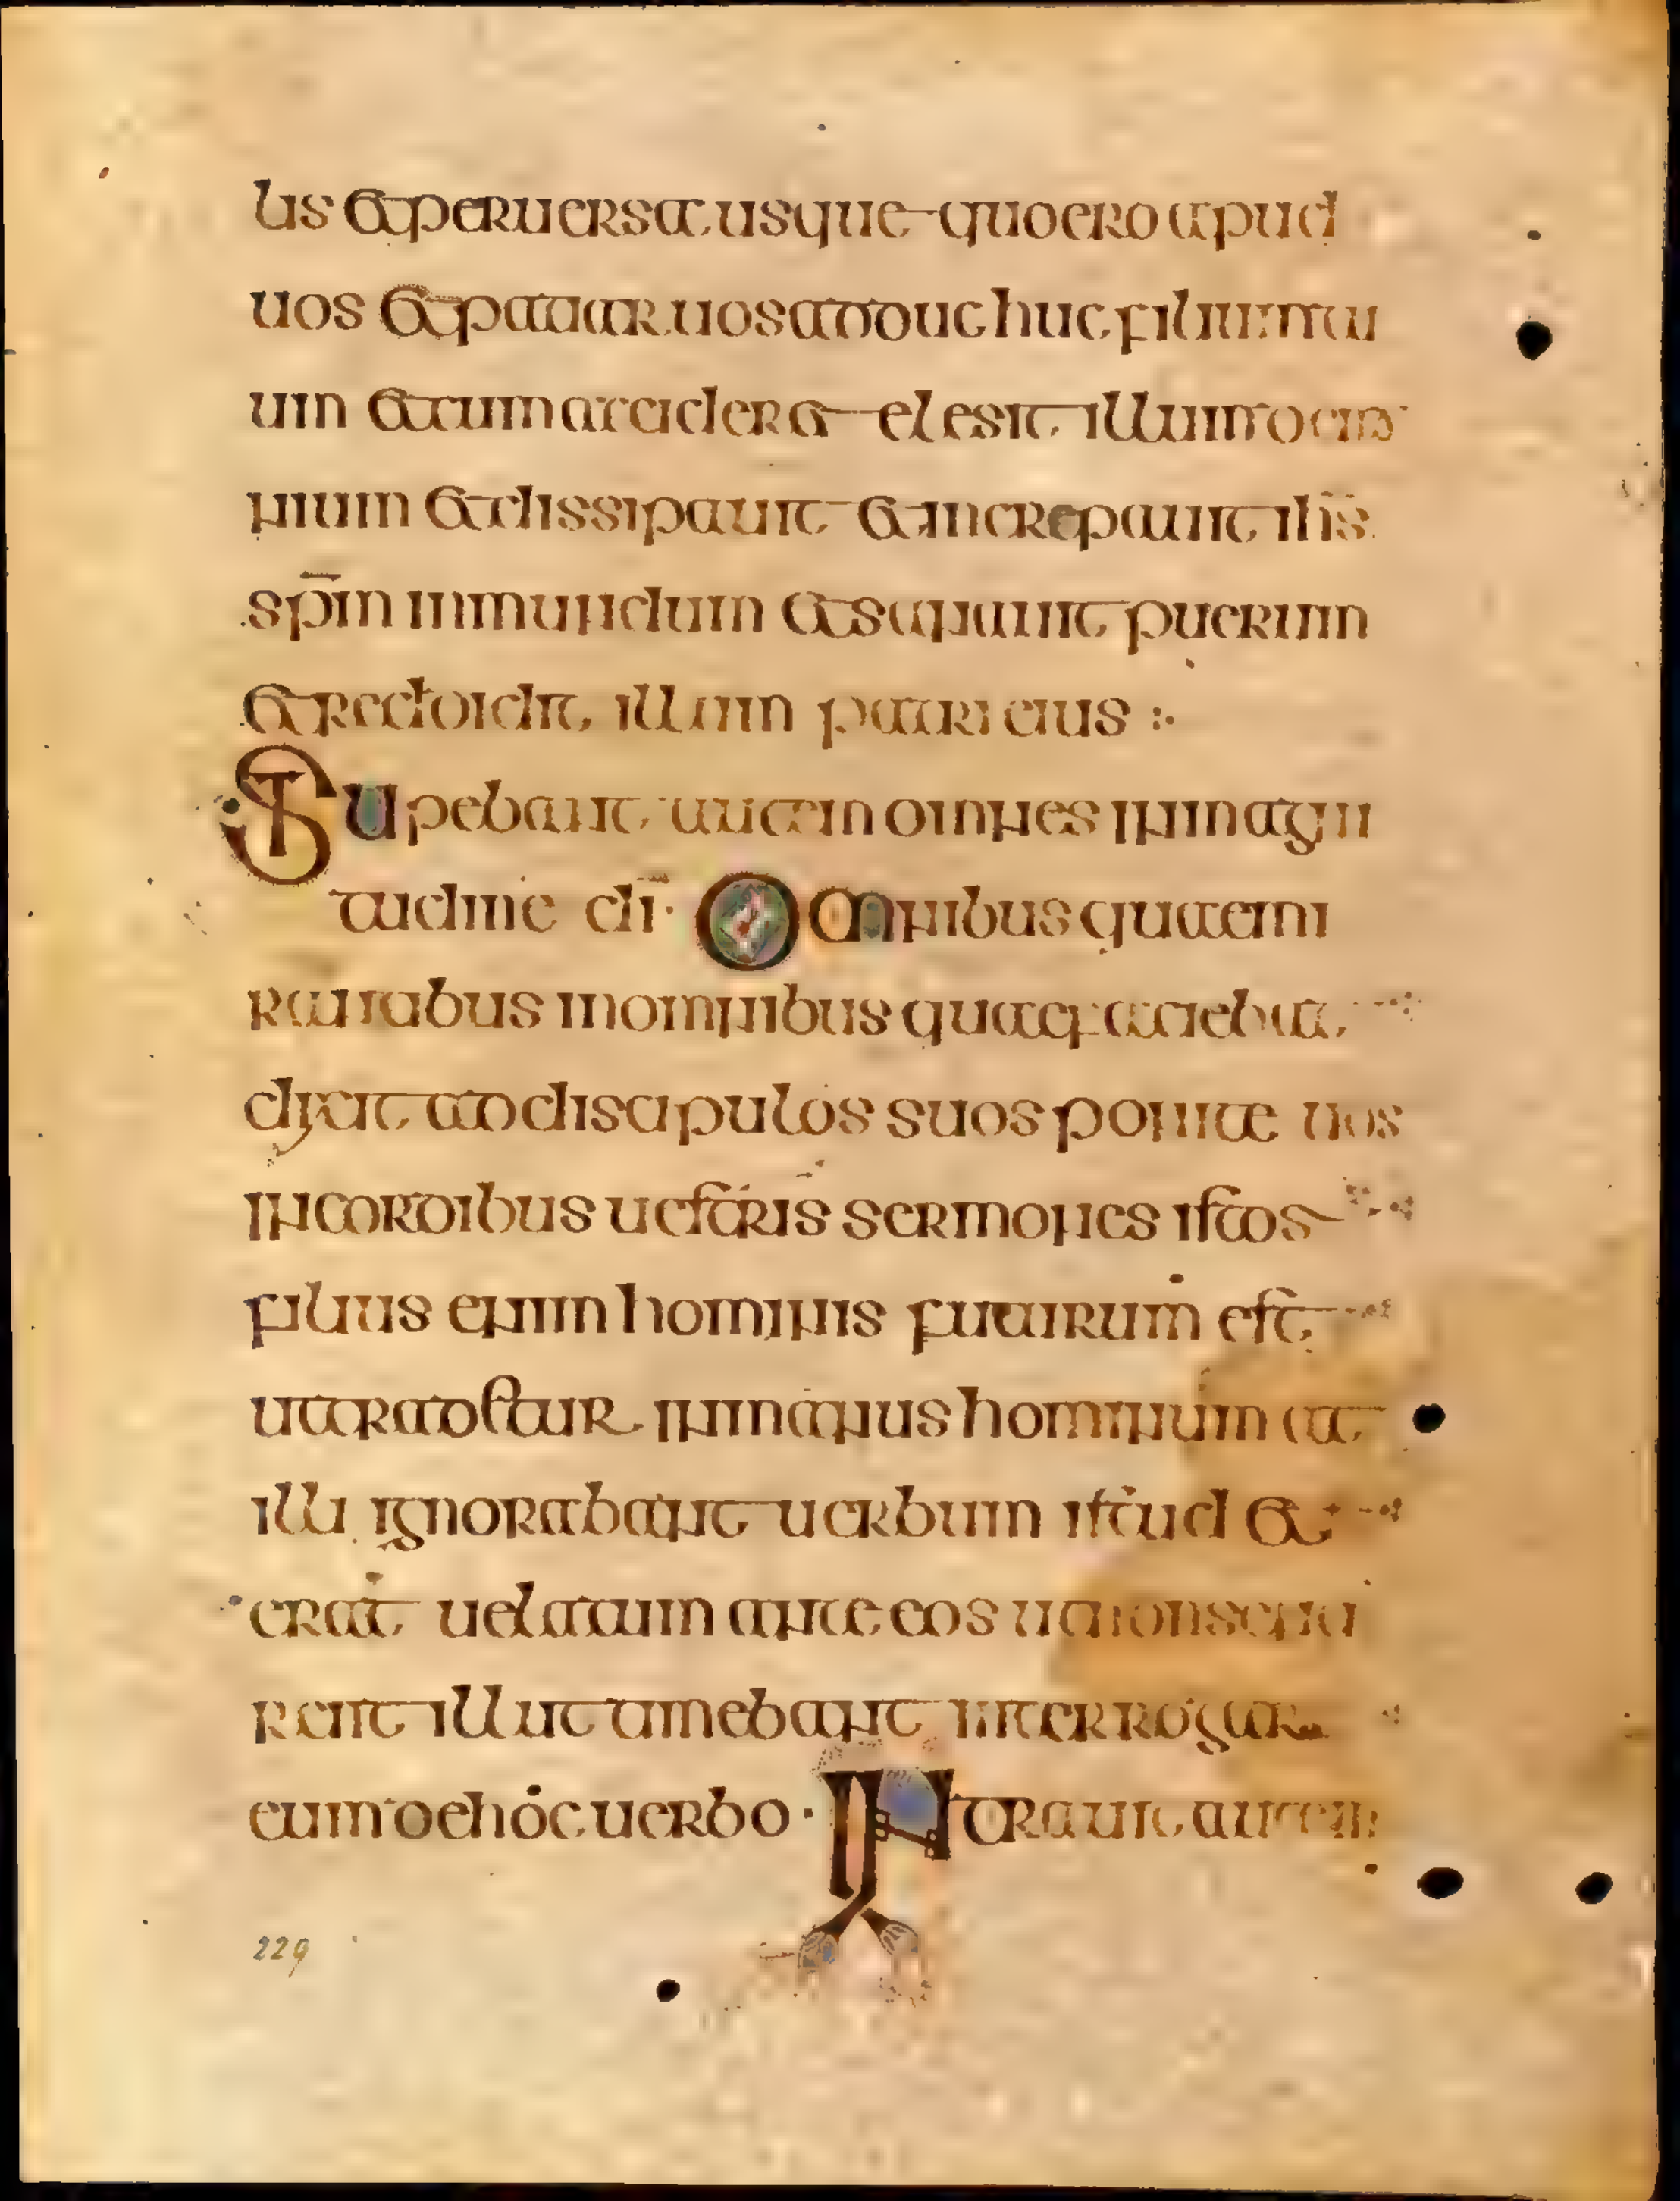 lis & peruersa usque quo ero apud
uos & patiar uos adduc huc filium tu
um & cum accideret elesit illum demo
nium & dissipauit & increpauit ihs
spm inmundum & sanauit puerum
& reddidit illum patri eius :.
Stupebant autem omnes in magni
tudine di · Omnibus que mi
rantibus in omnibus quae faciebat
dixit ad discipulos suos ponite uos
in cordibus uestris sermones istos
filius enim hominis futurum est
ut tradatur in manus hominum at
illi ignorabant uerbum istud &
erat uelatum ante eos ut non senti
rent illut timebant interrogare
eum de hoc uerbo · Intrauit autem
229